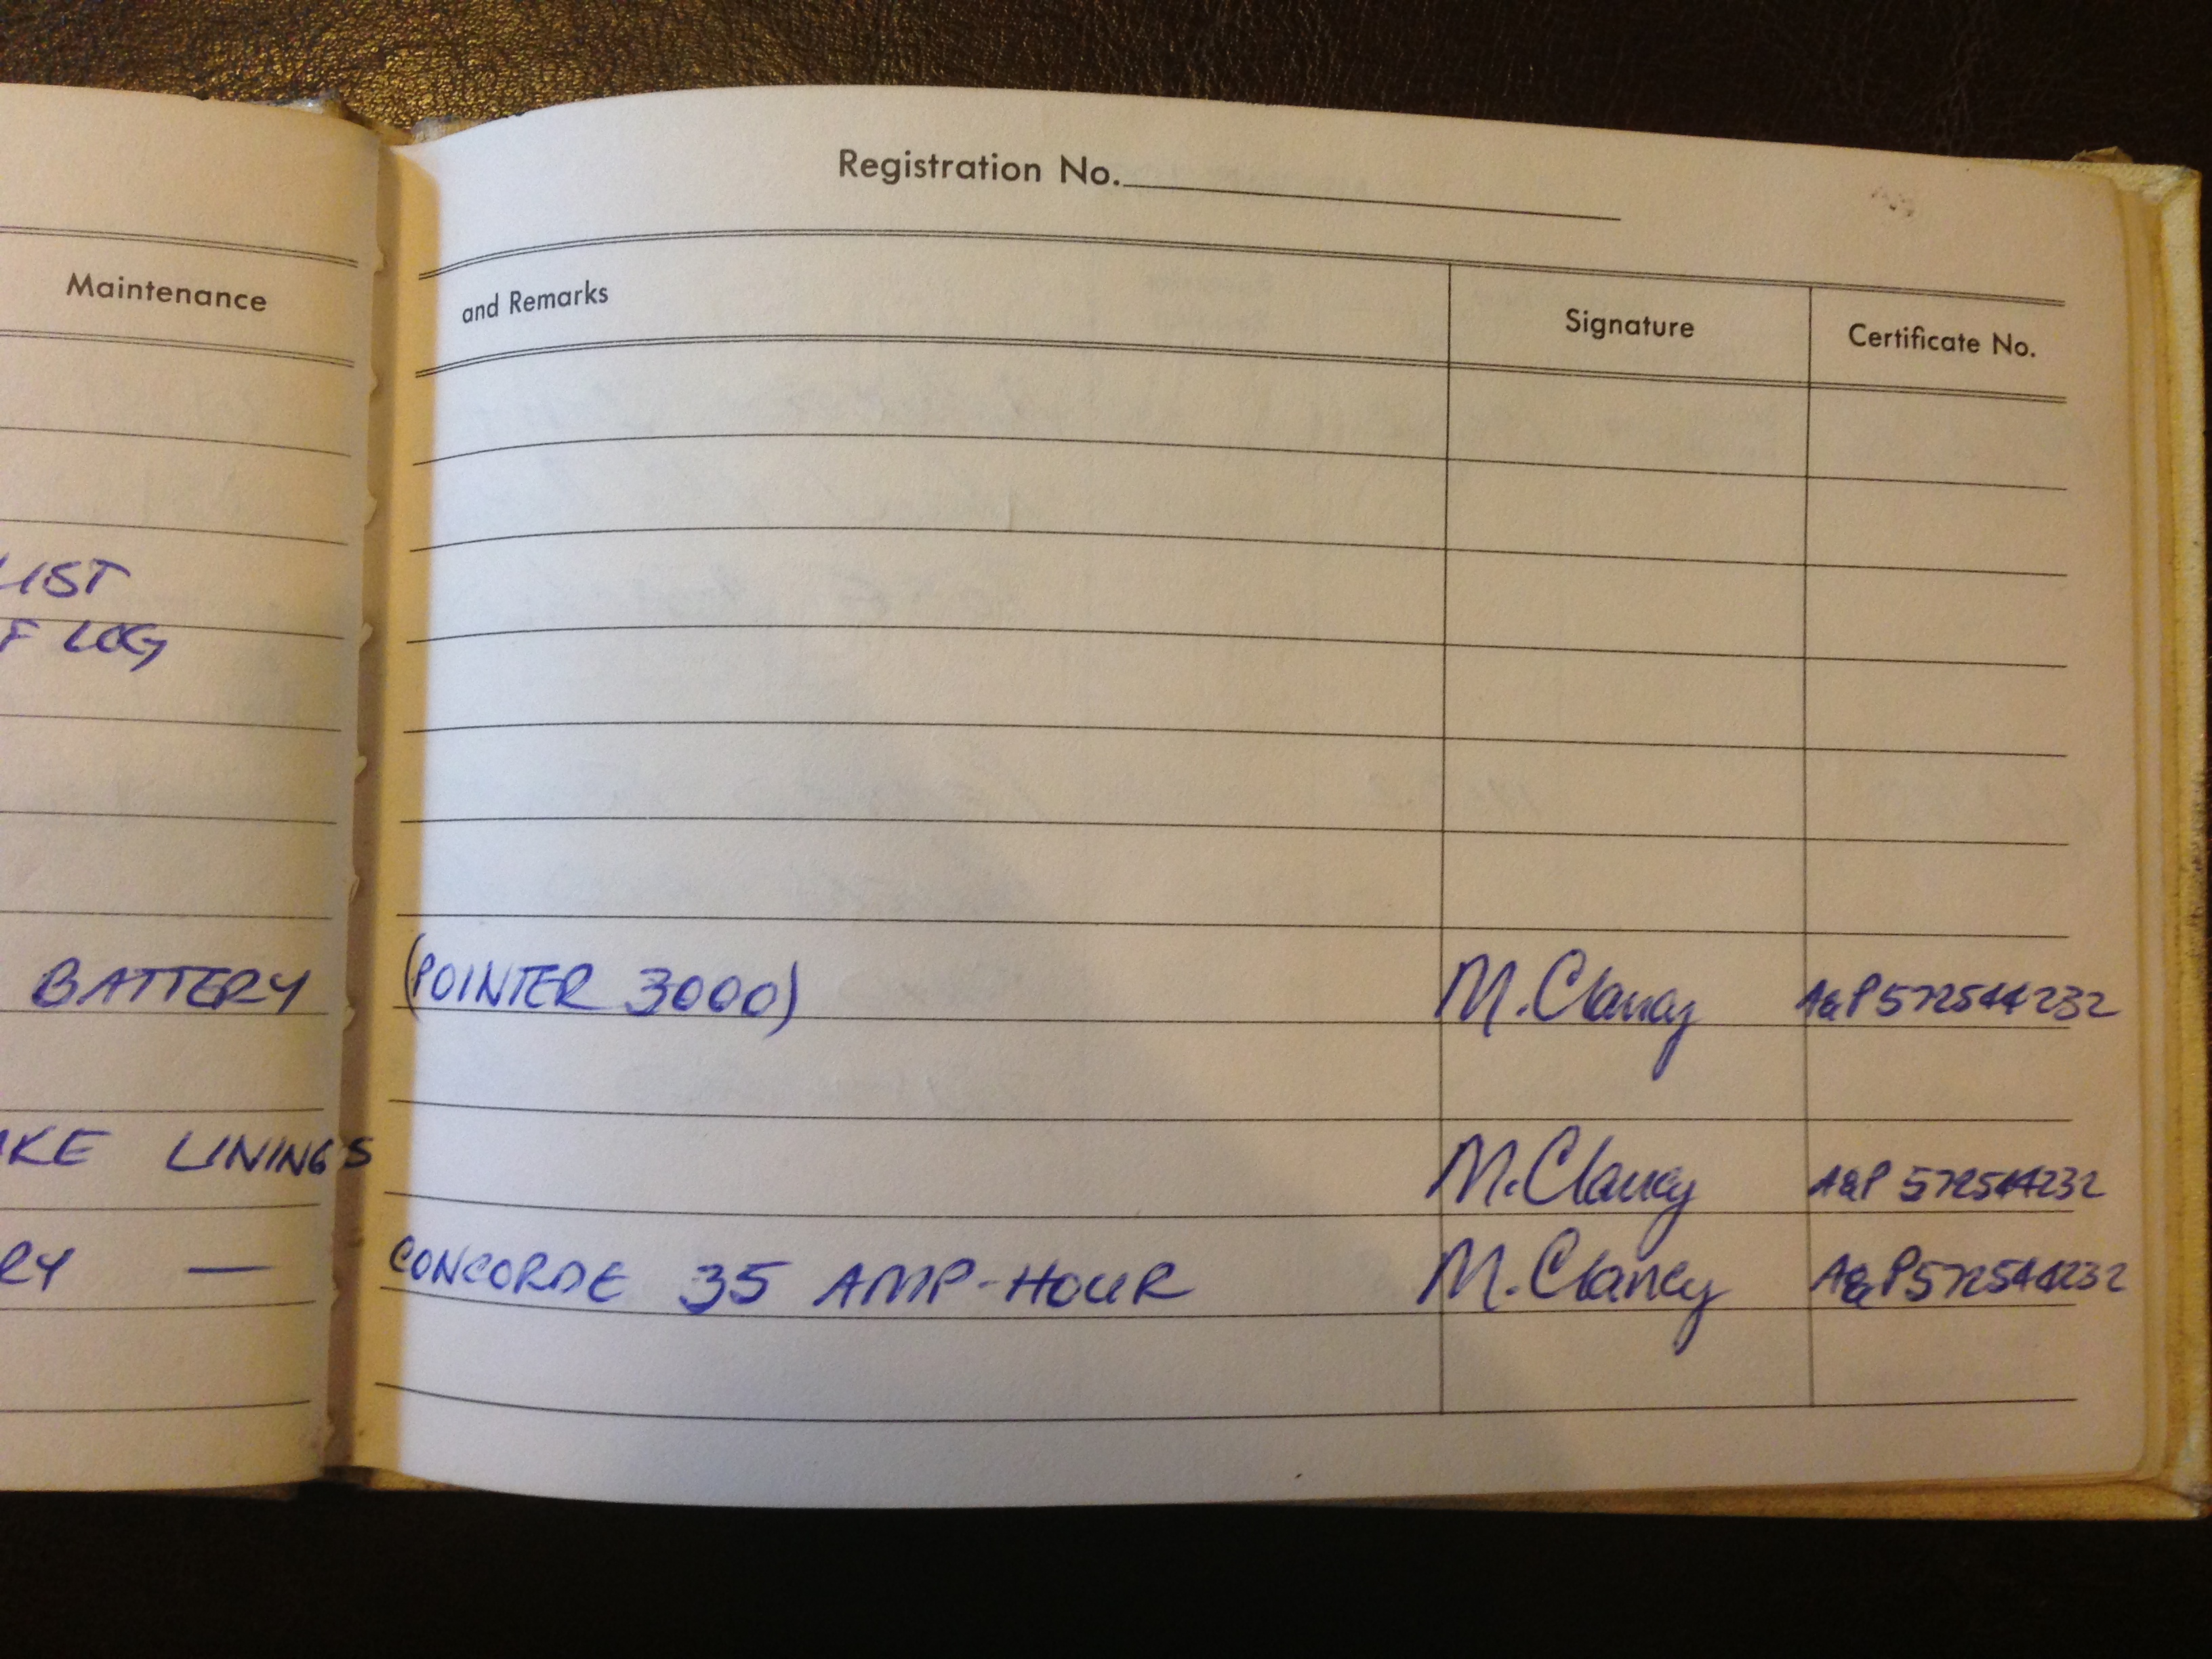 Registration No.
Maintenance and Remarks Signature Certificate No.
LIST
F LOG
BATTERY (POINTER 3000) M. Clancy A&P 572544232
AKE LININGS M. Clancy A&P 572544232
RY — CONCORDE 35 AMP-HOUR M. Clancy A&P 572544232